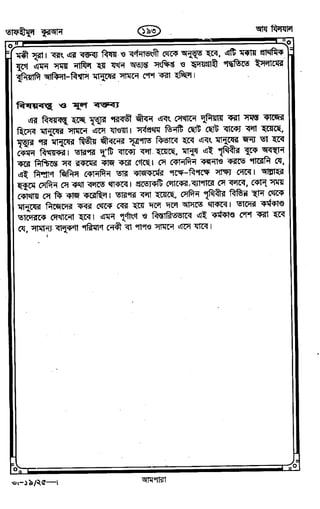 তাফহীমুল কুরআন
১৯৩
আয যিলযাল
মক্কী সূরা। বরং এর বক্তব্য বিষয় ও বর্ণনাভংগী থেকে অনুভূত হবে, এটি মক্কায় প্রাথমিক
যুগে এমন সময় নাযিল হয় যখন অত্যন্ত সংক্ষিপ্ত ও হৃদয়গ্রাহী পদ্ধতিতে ইসলামের
বুনিয়াদি আকিদা-বিশ্বাস মানুষের সামনে পেশ করা হচ্ছিল।
বিষয়বস্তু ও মূল বক্তব্য
এর বিষয়বস্তু হচ্ছে মৃত্যুর পরবর্তী জীবন এবং সেখানে দুনিয়ায় করা সমস্ত কাজের
হিসেব মানুষের সামনে এসে যাওয়া। সর্বপ্রথম তিনটি ছোট ছোট বাক্যে বলা হয়েছে,
মৃত্যুর পর মানুষের দ্বিতীয় জীবনের সূত্রপাত কিভাবে হবে এবং মানুষের জন্য তা হবে
কেমন বিস্ময়কর। তারপর দু'টি বাক্যে বলা হয়েছে, মানুষ এই পৃথিবীর বুকে অবস্থান
করে নিশ্চিন্তে সব রকমের কাজ করে গেছে। সে কোনদিন কল্পনাও করতে পারেনি যে,
এই নিষ্প্রাণ জিনিস কোনদিন তার কাজকর্মের পক্ষে-বিপক্ষে সাক্ষ্য দেবে। আল্লাহর
হুকুমে সেদিন সে কথা বলতে থাকবে। প্রত্যেকটি লোকের ব্যাপারে সে বলবে, কোন্ সময়
কোথায় সে কি কাজ করেছিল। তারপর বলা হয়েছে, সেদিন পৃথিবীর বিভিন্ন স্থান থেকে
মানুষেরা নিজেদের কবর থেকে বের হয়ে দলে দলে আসতে থাকবে। তাদের কর্মকাণ্ড
তাদেরকে দেখানো হবে। এমন পূর্ণাংগ ও বিস্তারিতভাবে এই কর্মকাণ্ড পেশ করা হবে
যে, সামান্য বালুকণা পরিমাণ নেকী বা পাপও সামনে এসে যাবে।
আমপারা